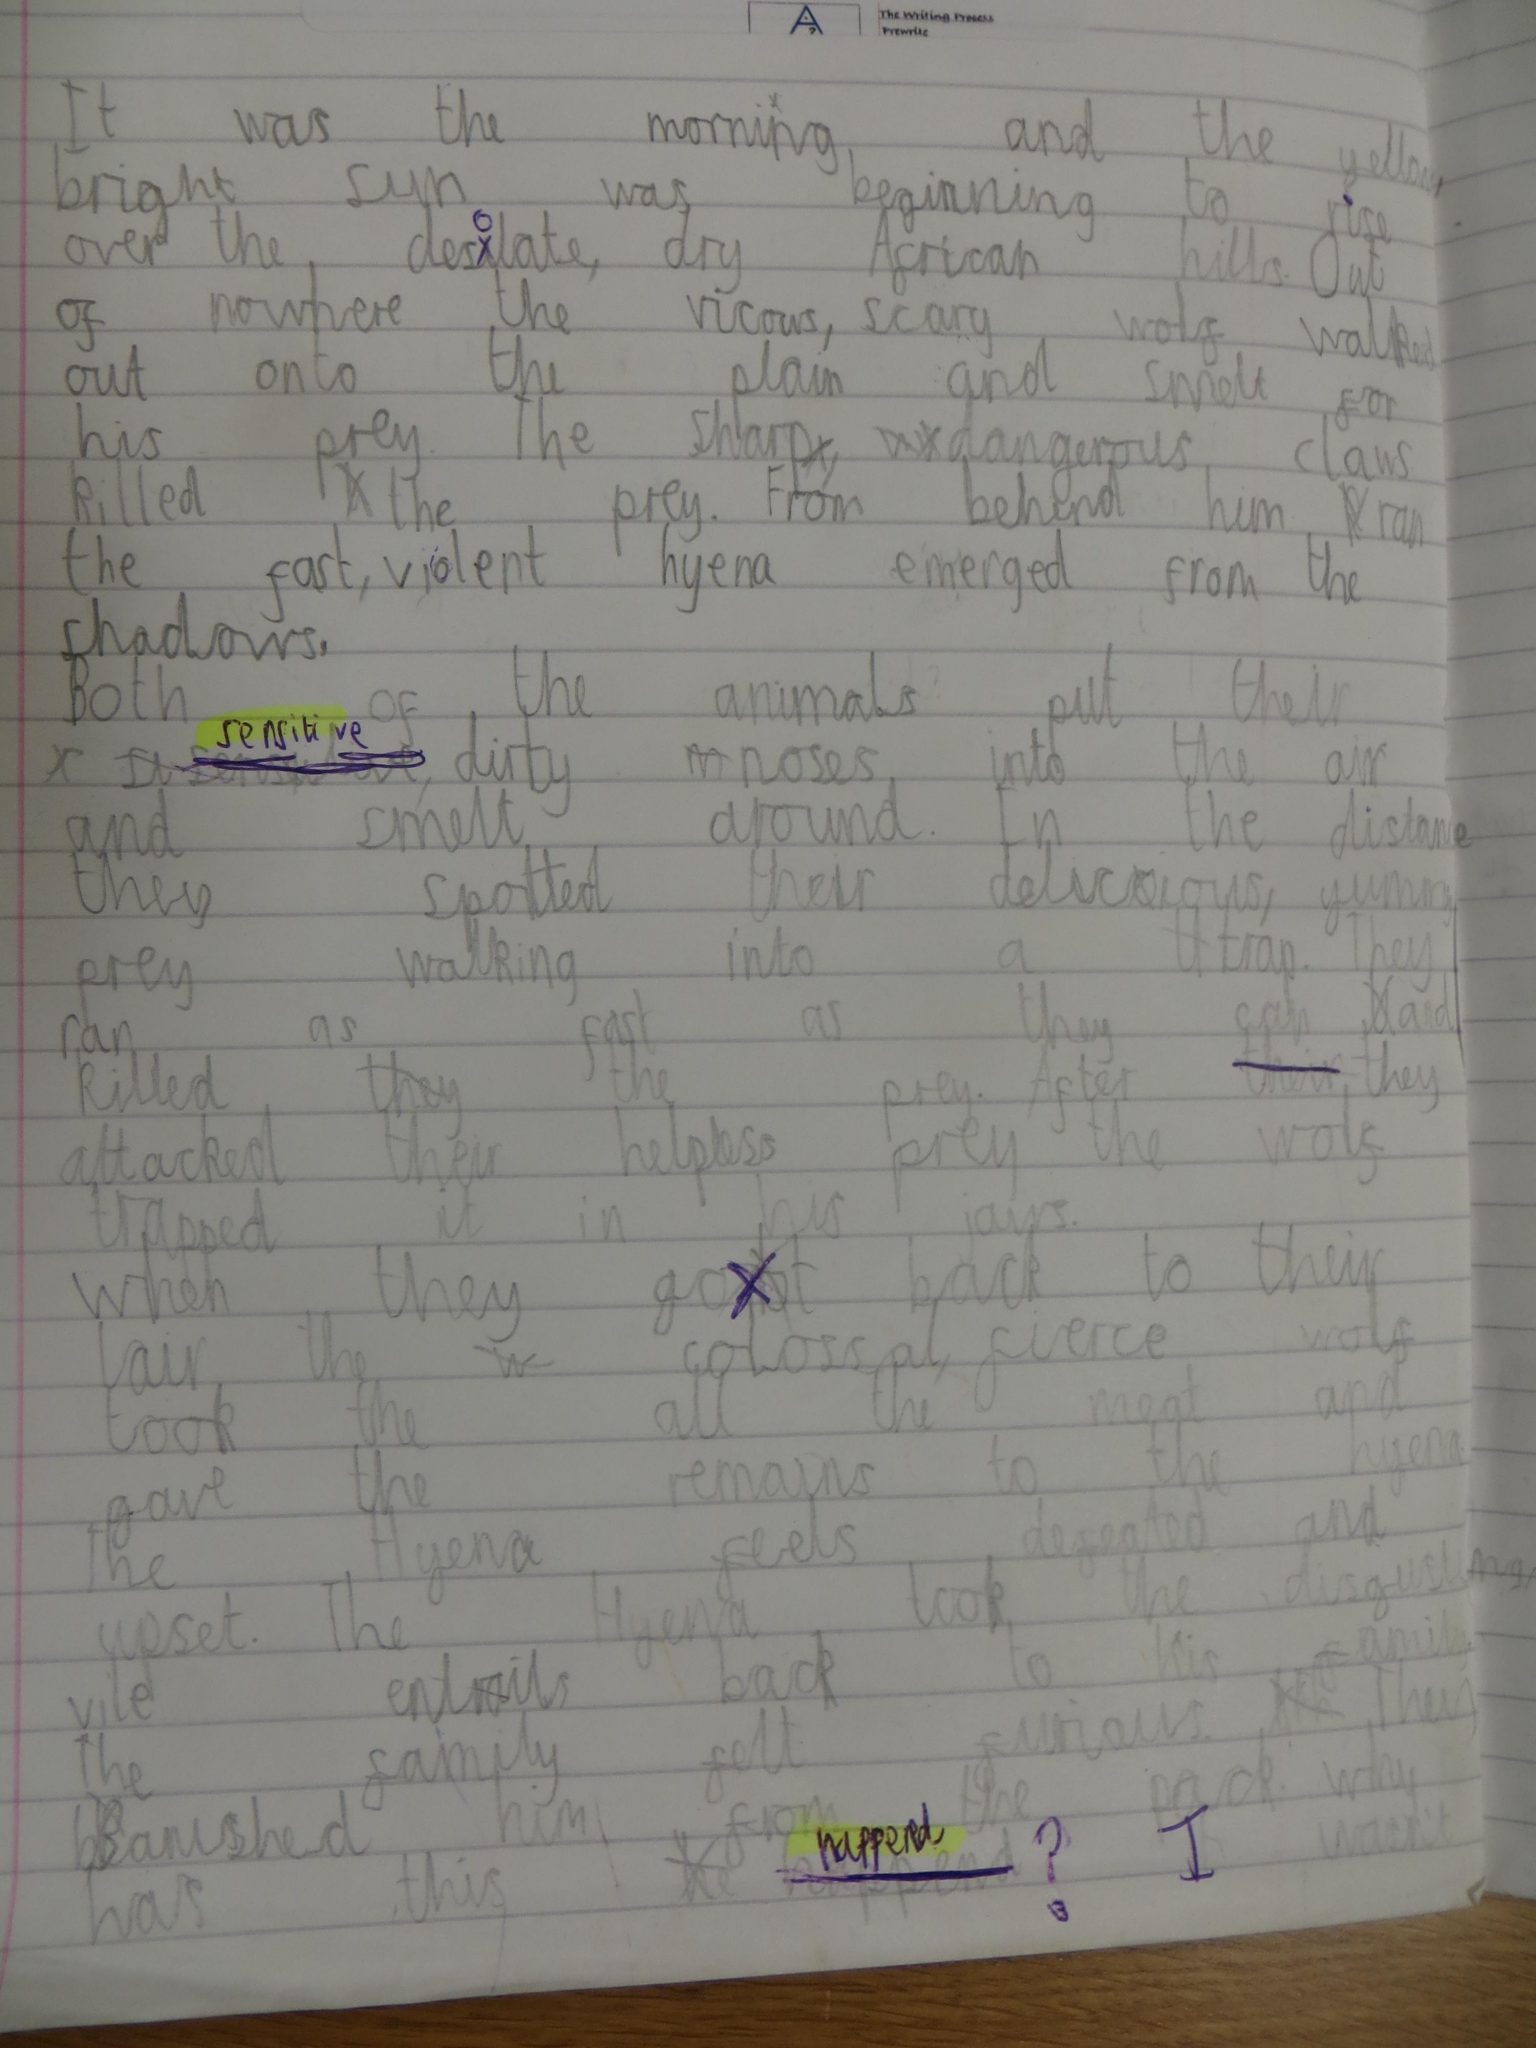 The Writing Process
Prewrite
It was the morning, and the yellow,
bright sun was beginning to rise
over the desolate, dry African hills. Out
of nowhere the vicous, scary wolf walked
out onto the plain and smelt for
his prey. The sharp, dangerous claws
killed the prey. From behend him ran
the fast, violent hyena emerged from the
shadows.
Both of the animals put their
sensitive, dirty noses into the air
and smelt around. In the distance
they spotted their delicious, yummy
prey walking into a trap. They
ran as fast as they can and
killed they the prey. After their they
attacked their helpless prey the wolf
trapped it in his jaws.
When they got back to their
lair, the colossal, fierce wolf
took the all the meat and
gave the remains to the hyena.
The Hyena feels defeated and
upset. The Hyena took the disgusting,
vile entrails back to his family.
The family felt furious. They
banished him from the pack. Why
has this happend? I wasn't